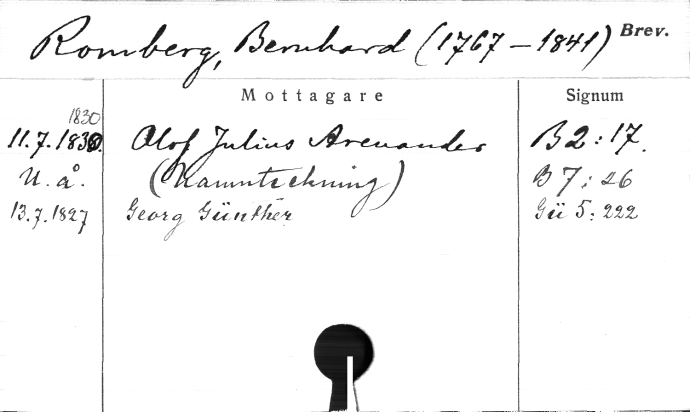 Romberg, Bernhard (1767 – 1841) Brev.
Mottagare Signum
1830
11.7.1830. Olof Julius Arenander B2:17.
U. å. (Namnteckning) B 7:26
13.7.1827 Georg Günther Gü 5:222